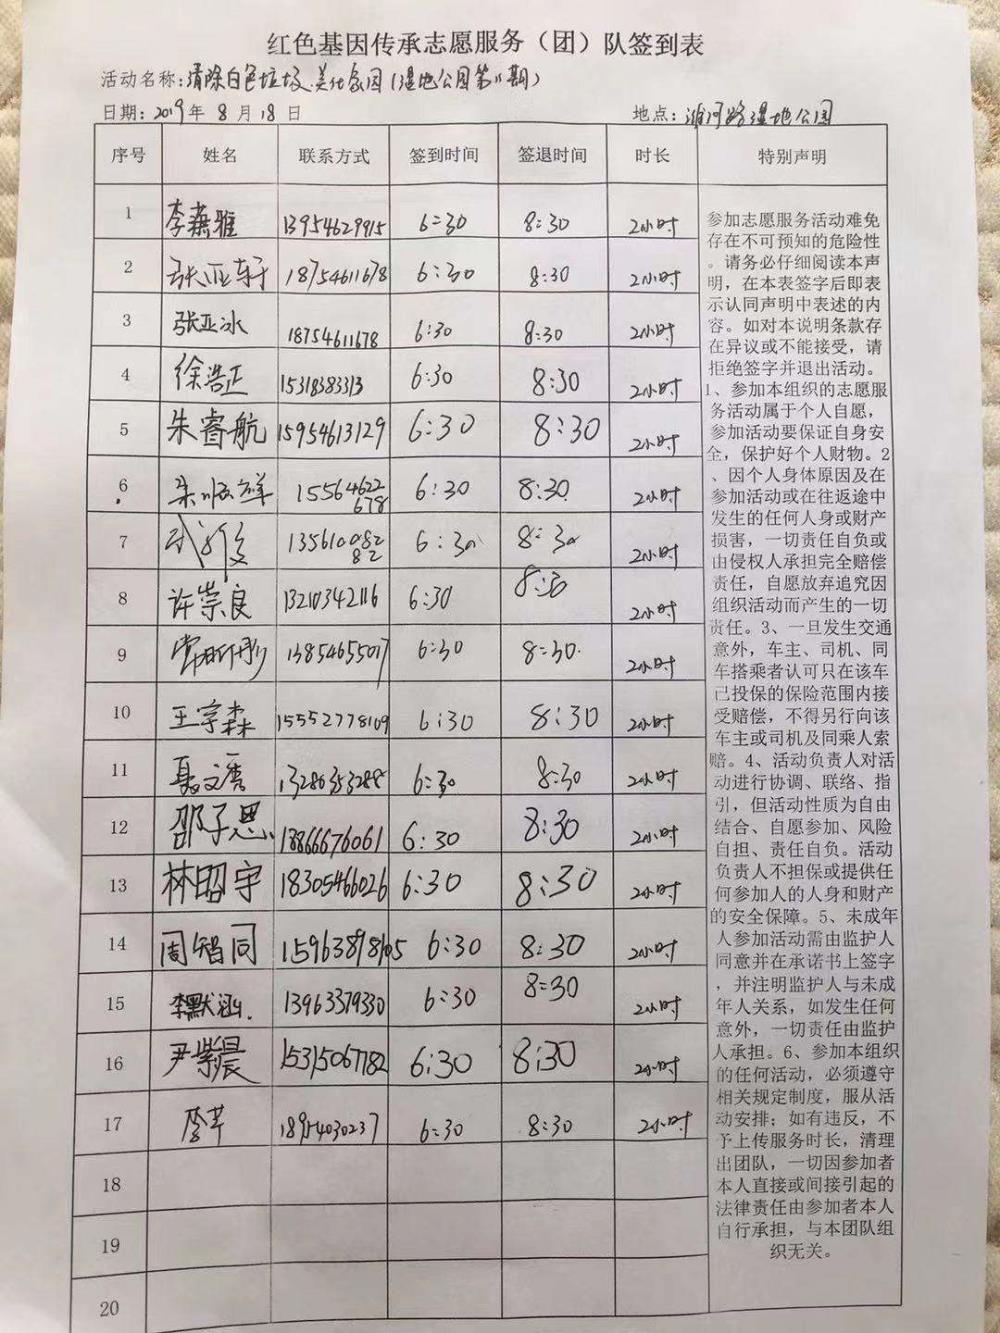 红色基因传承志愿服务（团）队签到表
活动名称：清除白色垃圾.美化家园（湿地公园第11期）
日期：2019年 8 月 18 日 地点：淮河路湿地公园
序号 姓名 联系方式 签到时间 签退时间 时长 特别声明
1 李燕雅 13954629915 6:30 8:30 2小时
2 18754611678 6:30 8:30 2小时
3 张亚冰 18754611678 6:30 8:30 2小时
4 徐浩正 15318383313 6:30 8:30 2小时
5 朱睿航 15954613129 6:30 8:30 2小时
6 15564622678 6:30 8:30 2小时
7 13561008282 6:30 8:30 2小时
8 许崇良 13210342116 6:30 8:30 2小时
9 13854655017 6:30 8:30 2小时
10 王字森 15552778109 6:30 8:30 2小时
11 聂文秀 13280353288 6:30 8:30 2小时
12 邵子思 13866676061 6:30 8:30 2小时
13 林昭宇 18305466026 6:30 8:30 2小时
14 周智同 15963898105 6:30 8:30 2小时
15 李默涵 13963379330 6:30 8:30 2小时
16 尹紫晨 15315067782 6:30 8:30 2小时
17 18954030237 6:30 8:30 2小时
18
19
20
参加志愿服务活动难免
存在不可预知的危险性
。请务必仔细阅读本声
明，在本表签字后即表
示认同声明中表述的内
容。如对本说明条款存
在异议或不能接受，请
拒绝签字并退出活动。
1、参加本组织的志愿服
务活动属于个人自愿，
参加活动要保证自身安
全，保护好个人财物。2
、因个人身体原因及在
参加活动或在往返途中
发生的任何人身或财产
损害，一切责任自负或
由侵权人承担完全赔偿
责任，自愿放弃追究因
组织活动而产生的一切
责任。3、一旦发生交通
意外，车主、司机、同
车搭乘者认可只在该车
已投保的保险范围内接
受赔偿，不得另行向该
车主或司机及同乘人索
赔。4、活动负责人对活
动进行协调、联络、指
引，但活动性质为自由
结合、自愿参加、风险
自担、责任自负。活动
负责人不担保或提供任
何参加人的人身和财产
的安全保障。5、未成年
人参加活动需由监护人
同意并在承诺书上签字
，并注明监护人与未成
年人关系，如发生任何
意外，一切责任由监护
人承担。6、参加本组织
的任何活动，必须遵守
相关规定制度，服从活
动安排；如有违反，不
予上传服务时长，清理
出团队，一切因参加者
本人直接或间接引起的
法律责任由参加者本人
自行承担，与本团队组
织无关。